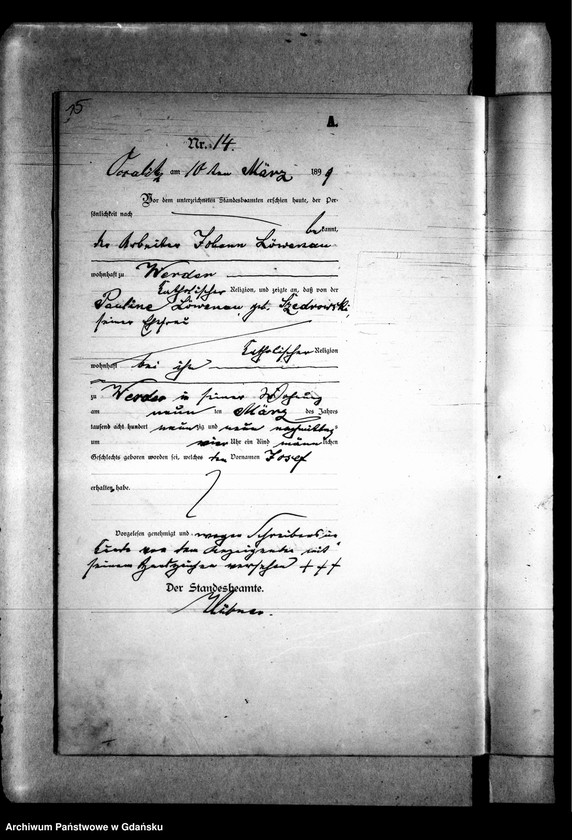 15
A.
Nr. 14.
am 10 ten März 1899
Vor dem unterzeichneten Standesbeamten erschien heute, der Per-
sönlichkeit nach
bekannt,
der Arbeiter Johann Löwenau
wohnhaft zu Werder
katholischer Religion, und zeigte an, daß von der
Pauline Löwenau geb. Szedrowski,
seiner Ehefrau
katholischer Religion
wohnhaft bei ihm
zu Werder in seiner Wohnung
am neun ten März des Jahres
tausend acht hundert neunzig und neun nachmittags
um vier Uhr ein Kind männlichen
Geschlechts geboren worden sei, welches den Vornamen Josef
erhalten habe.
Vorgelesen genehmigt und wegen Schreibens un-
kunde von dem Anzeigenden mit
seinem Handzeichen versehen + + +
Der Standesbeamte.
Archiwum Państwowe w Gdańsku